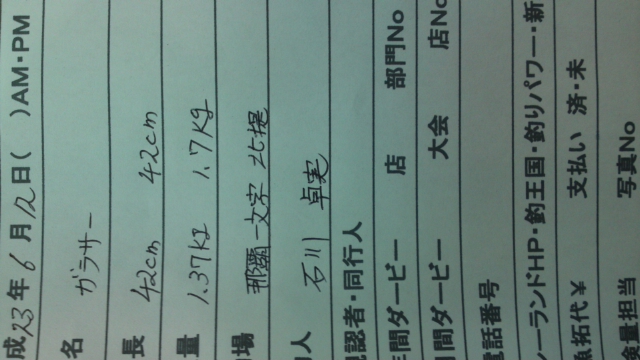 成23年6月12日( )AM・PM
名 ガラサー
長 42cm 42cm
量 1.37kg 1.7kg
場 那覇一文字 北堤
人 石川 卓実
認者・同行人
間ダービー 店 部門No
間ダービー 大会 店No
電話番号
ーランドHP・釣王国・釣りパワー・新
魚拓代¥ 支払い 済・未
量担当 写真No